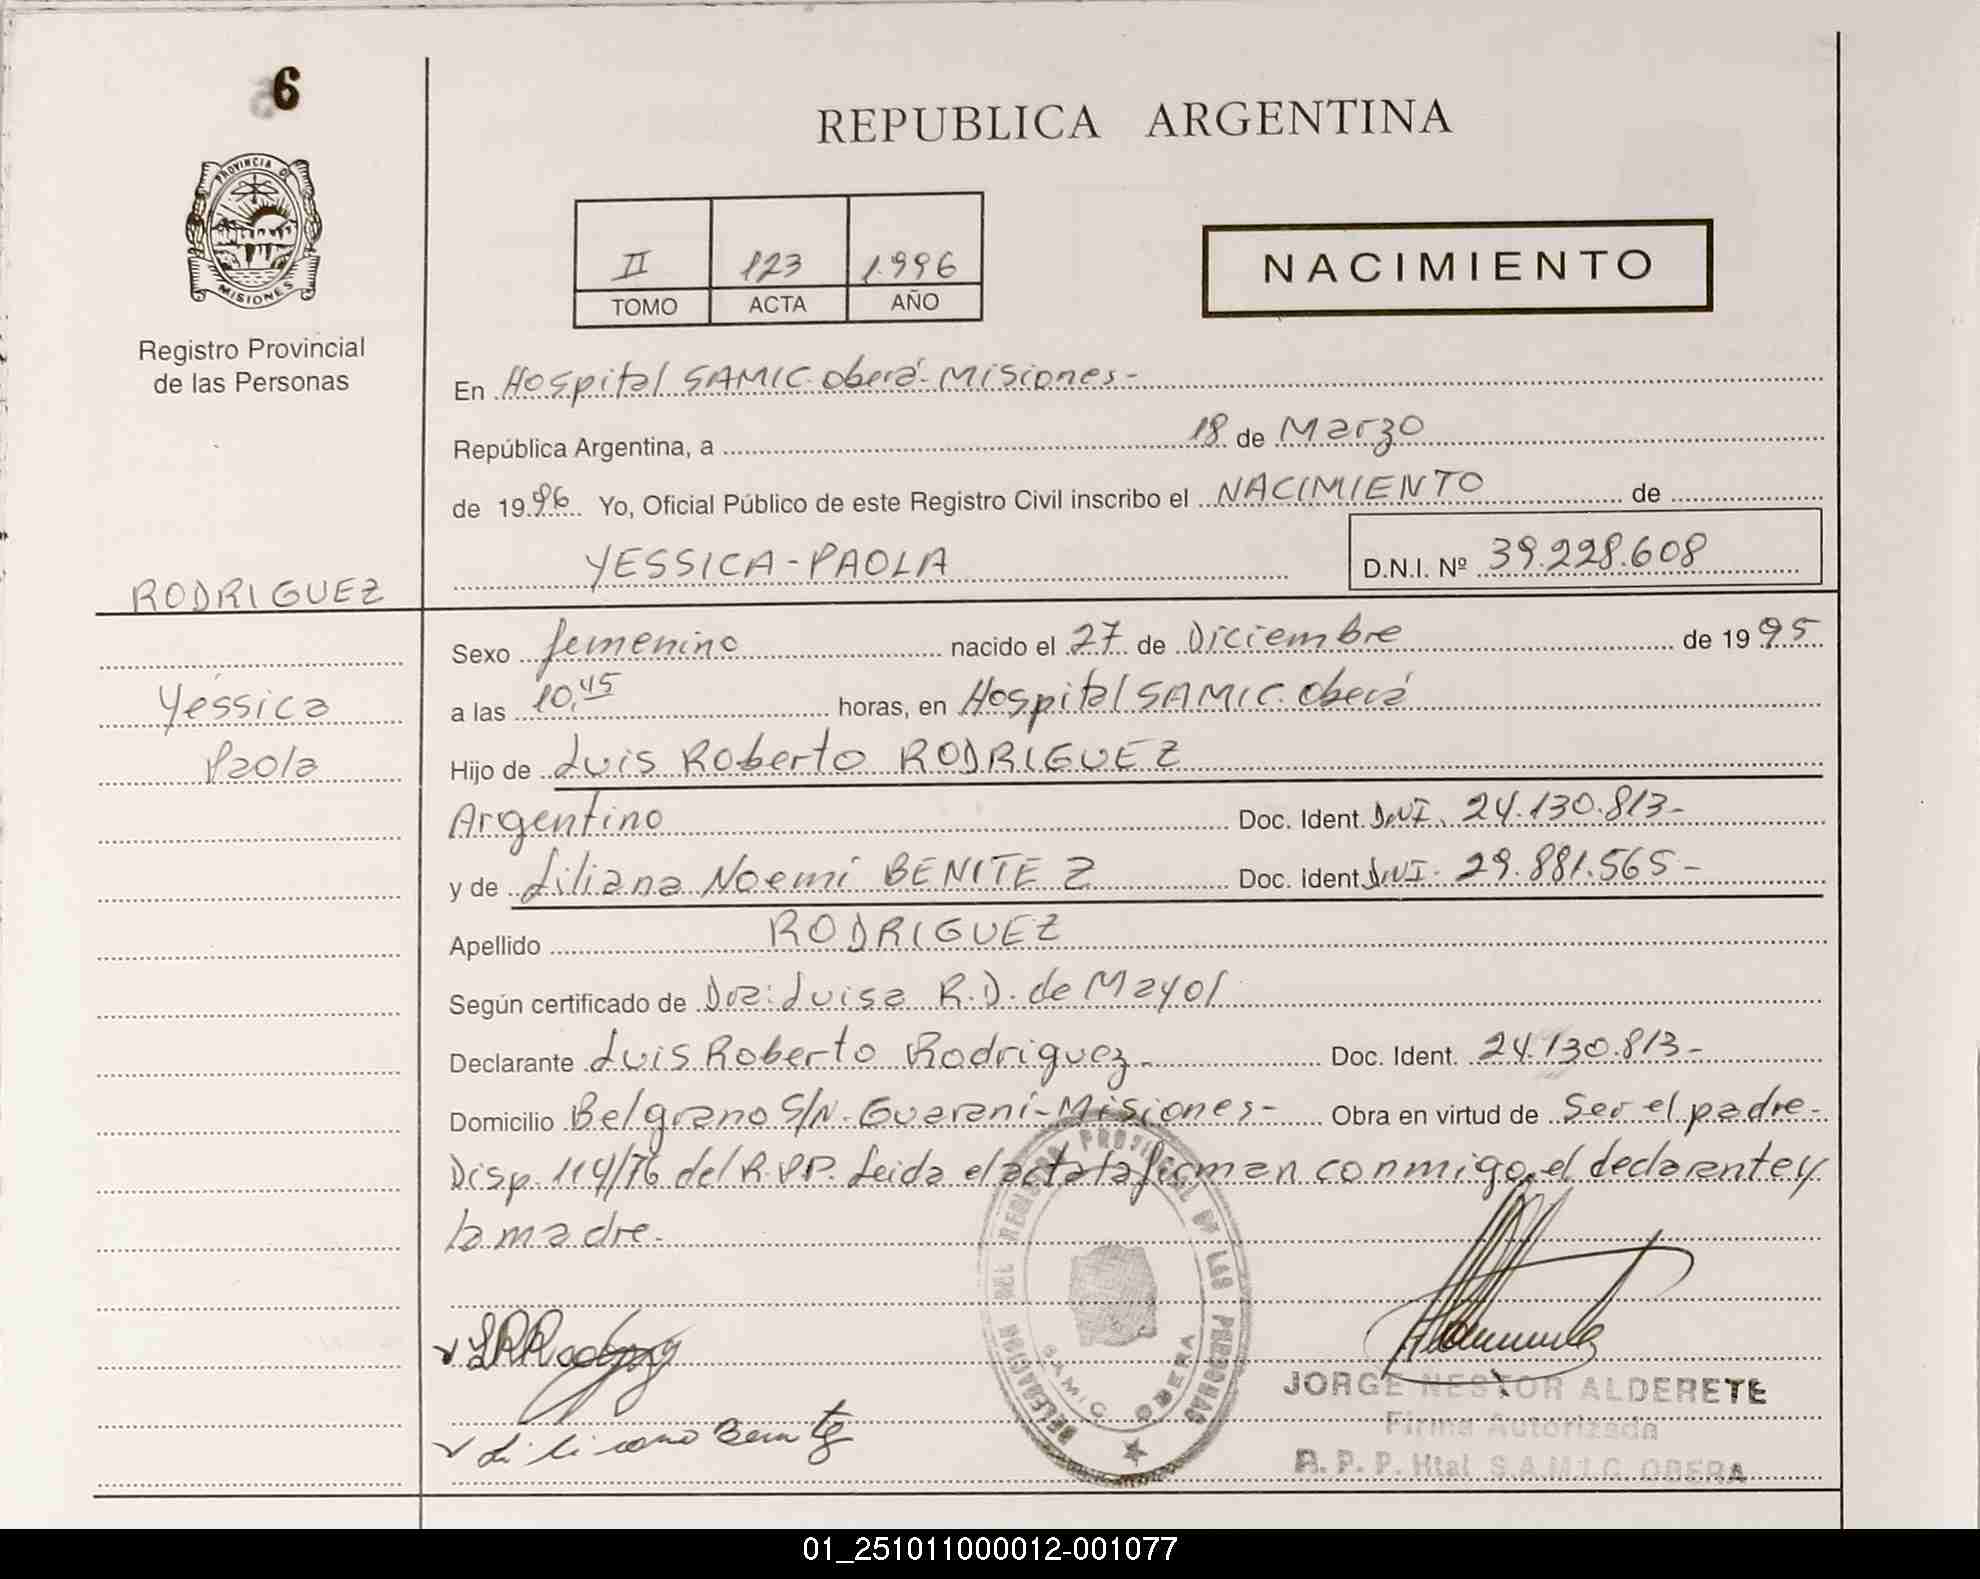 6
REPUBLICA ARGENTINA
PROVINCIA DE
MISIONES
II 123 1.996
TOMO ACTA AÑO
NACIMIENTO
Registro Provincial
de las Personas
En Hospital SAMIC. oberá - Misiones -
República Argentina, a 18 de Marzo
de 1996 Yo, Oficial Público de este Registro Civil inscribo el NACIMIENTO de
YESSICA - PAOLA D.N.I. Nº 39.228.608
RODRIGUEZ
Yéssica
Paola
Sexo femenino nacido el 27 de Diciembre de 1995
a las 10,45 horas, en Hospital SAMIC. Oberá
Hijo de Luis Roberto RODRIGUEZ
Argentino Doc. Ident. DNI. 24.130.813-
y de Liliana Noemí BENITEZ Doc. Ident DNI. 29.881.565-
Apellido RODRIGUEZ
Según certificado de Dra: Luisa R.D. de Mayol
Declarante Luis Roberto Rodriguez - Doc. Ident. 24.130.813-
Domicilio Belgrano S/N. Guaraní - Misiones - Obra en virtud de Ser el padre -
Disp. 114/76 del R.P.P. Leida el acta la firman conmigo, el declarante y
la madre.
DELEGACION DEL REGISTRO PROVINCIAL DE LAS PERSONAS
S.A.M.I.C. OBERA
LRRodriguez
Liliana Benitez
JORGE NESTOR ALDERETE
Firma Autorizada
R. P. P. Htal S.A.M.I.C OBERA
01_251011000012-001077